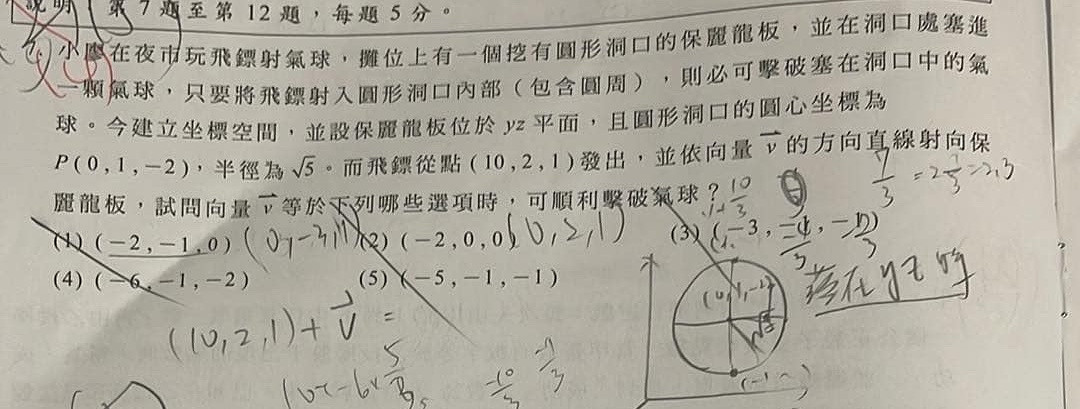 說明 第 7 題至第 12 題，每題 5 分。
小廖在夜市玩飛鏢射氣球，攤位上有一個挖有圓形洞口的保麗龍板，並在洞口處塞進
一顆氣球，只要將飛鏢射入圓形洞口內部（包含圓周），則必可擊破塞在洞口中的氣
球。今建立坐標空間，並設保麗龍板位於 yz 平面，且圓形洞口的圓心坐標為
P(0,1,-2)，半徑為 √5。而飛鏢從點 (10,2,1) 發出，並依向量 v 的方向直線射向保
麗龍板，試問向量 v 等於下列哪些選項時，可順利擊破氣球？
7/3 = 2 1/3 = 2.3
10/3
(1) (-2,-1,0) (0,-3,1) (2) (-2,0,0) (0,2,1) (3) (-3,
(4) (-6,-1,-2) (5) (-5,-1,-1)
落在yz時
(10,2,1)+v =